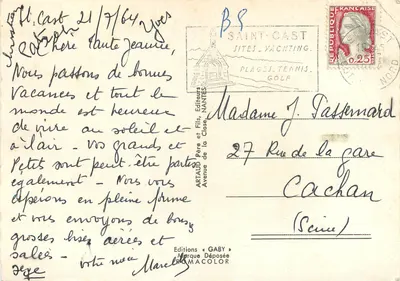 St. Cast 21/7/64
Chère tante Jeanne,
Nous passons de bonnes
Vacances et tout le
monde est heureux
de vivre au soleil et
à l'air - Vos grands et
Petit sont peut-être partis
également. Nous vous
espérons en pleine forme
et vous envoyons de bons
grosses bises aérées et
salées -
votre
Yves
B5
SAINT-CAST
SITES. YACHTING
PLAGES. TENNIS.
GOLF
REPUBLIQUE FRANÇAISE
0,25
NORD
ARTAUD Père et Fils, Editeurs
Avenue de la Close, NANTES
Madame J. Passernard
27 Rue de la gare
Cachan
(Seine)
Editions « GABY »
Marque Déposée
ROMACOLOR